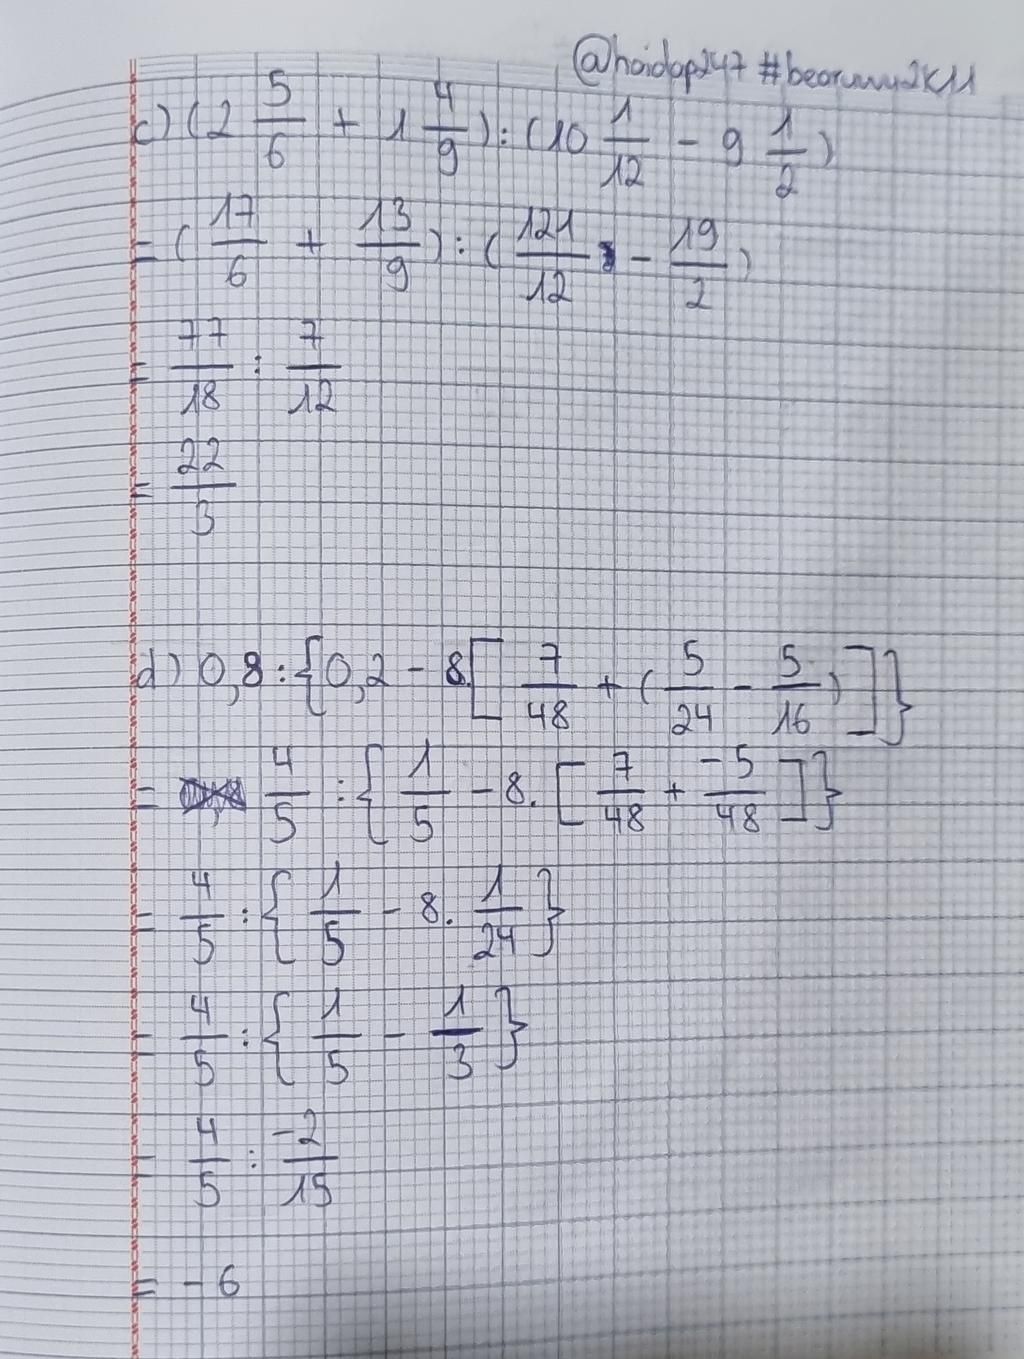 @hoidap247 #bearmy2k11
c) (2 5/6 + 1 4/9) : (10 1/12 - 9 1/2)
= (17/6 + 13/9) : (121/12 - 19/2)
= 77/18 : 7/12
= 22/3
d) 0,8 : {0,2 - 8.[7/48 + (5/24 - 5/16)]}
= 4/5 : {1/5 - 8.[7/48 + -5/48]}
= 4/5 : {1/5 - 8. 1/24}
= 4/5 : {1/5 - 1/3}
= 4/5 : -2/15
= -6